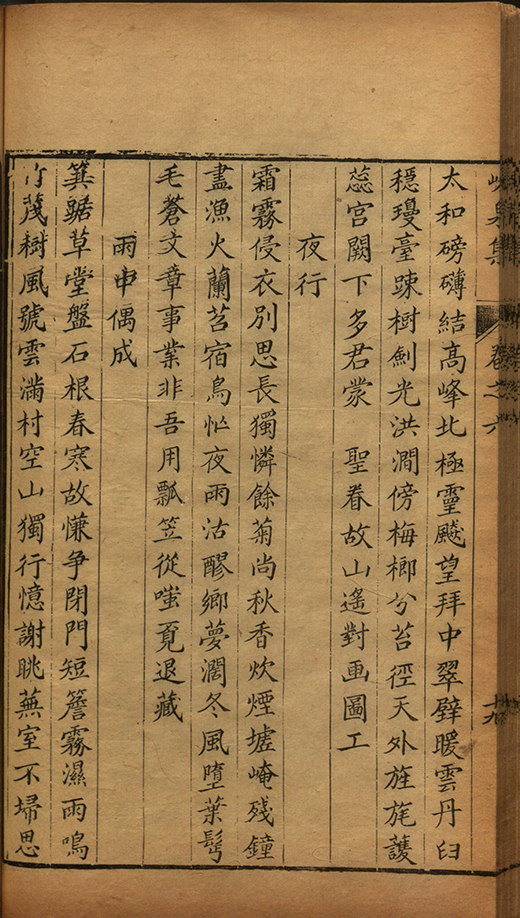 峴泉集 卷之六 十九
太和磅礴結高峰北極靈飈望拜中翠壁暖雲丹臼
穩瓊臺踈樹劍光洪澗傍梅榔兮苔徑天外旌旄護
蕊宮闕下多君蒙 聖眷故山遙對画圖工
夜行
霜霧侵衣別思長獨憐餘菊尚秋香炊煙墟崦殘鐘
盡漁火蘭苕宿鳥忙夜雨沽醪鄉夢濶冬風墮葉髩
毛蒼文章事業非吾用瓢笠從嗤覓退藏
雨中偶成
箕踞草堂盤石根春寒故慊争閉門短簷霧濕雨鳴
竹茂樹風號雲滿村空山獨行憶謝眺蕪室不埽思